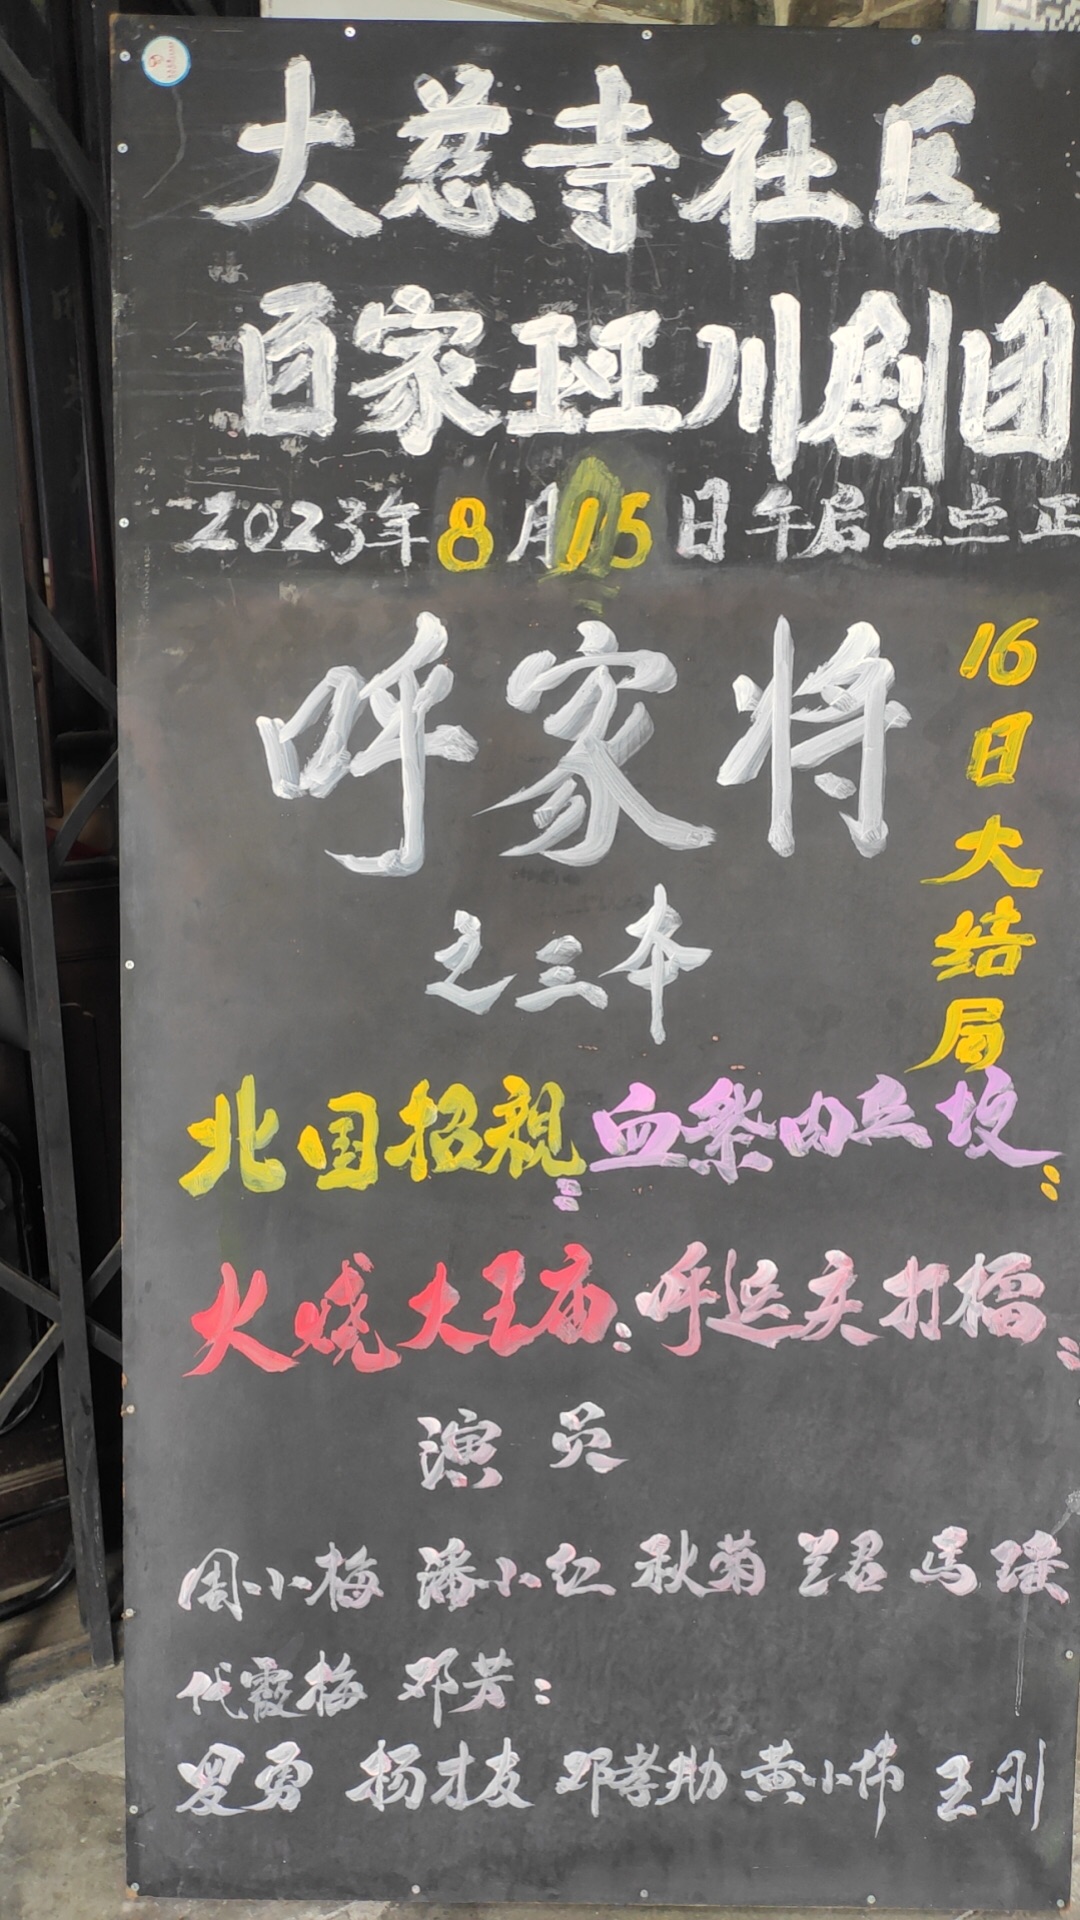 大慈寺社区
百家班川剧团
2023年8月15日午后2点正
呼家将
16日大结局
之三本
北国招亲:血祭肉丘坟:
火烧大王庙:呼延庆打擂:
演员
周小梅 潘小红 秋菊 兰君 马瑛
代霞梅 邓芳:
罗勇 杨才友 邓孝勋 黄小伟 王刚